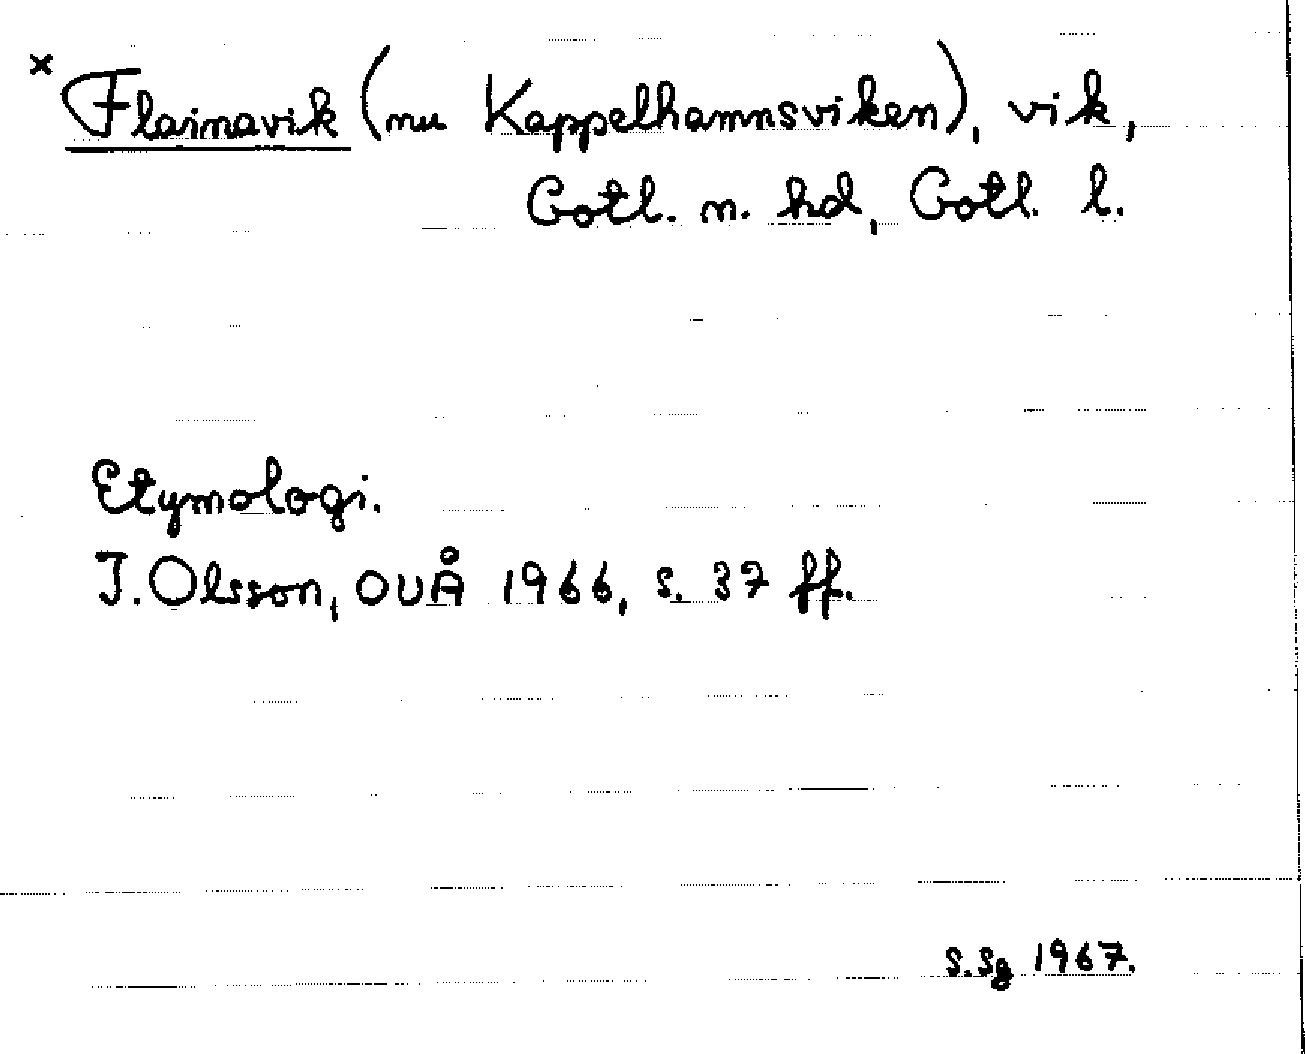 × Flainavik (nu Kappelhamnsviken), vik,
Gotl. n. hd, Gotl. l.
Etymologi.
I. Olsson, OUÅ 1966, s. 37 ff.
S.Sg 1967.